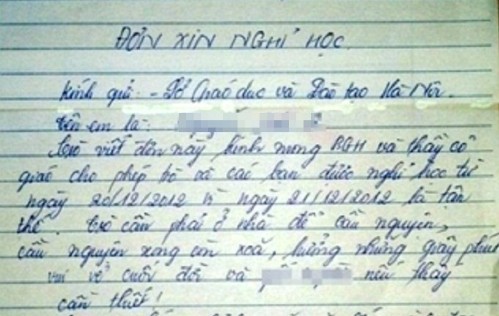 ĐƠN XIN NGHỈ HỌC
Kính gửi: - Sở Giáo dục và Đào tạo Hà Nội.
Tên em là:
Tớ viết đơn này kính mong BGH và thầy cô
giáo cho phép tớ và các bạn được nghỉ học từ
ngày 20/12/2012 vì ngày 21/12/2012 là tận
thế. Tớ cần phải ở nhà để cầu nguyện,
cầu nguyện xong còn xoã, hưởng những giây phút
vui vẻ cuối đời và nếu thấy
cần thiết!